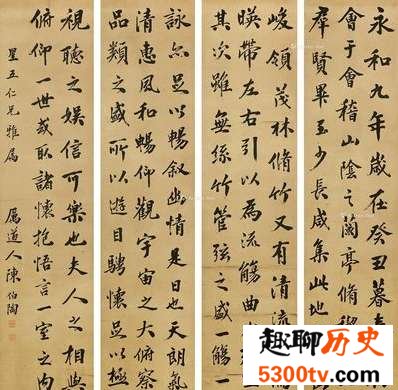 永和九年歲在癸丑暮春
會于會稽山陰之蘭亭脩禊
群賢畢至少長咸集此地
峻領茂林脩竹又有清流
暎帶左右引以為流觴曲
其次雖無絲竹管弦之盛一觴一
詠亦足以暢敘幽情是日也天朗氣
清惠風和暢仰觀宇宙之大俯察
品類之盛所以遊目騁懷足以極
視聽之娛信可樂也夫人之相與
俯仰一世或取諸懷抱悟言一室之內
星五仁兄雅屬
道人陳伯陶
趣聊历史
5300TV.com